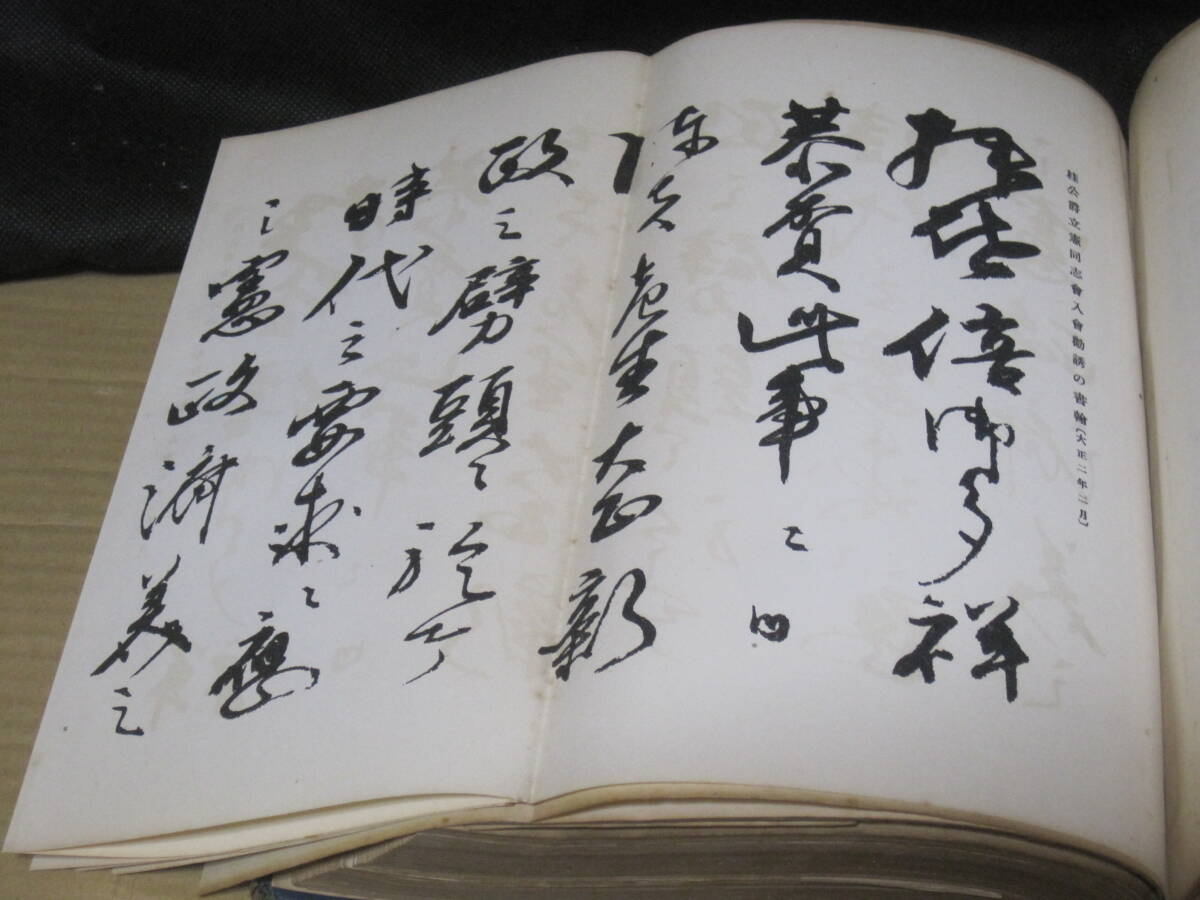 桂公爵立憲同志會入會勸誘の書翰〔大正二年二月〕
拜啓倍御多祥
恭賀此事ニ御
陳者老生大正新
政之劈頭ニ於テ
時代之要求ニ應
シ憲政濟美之